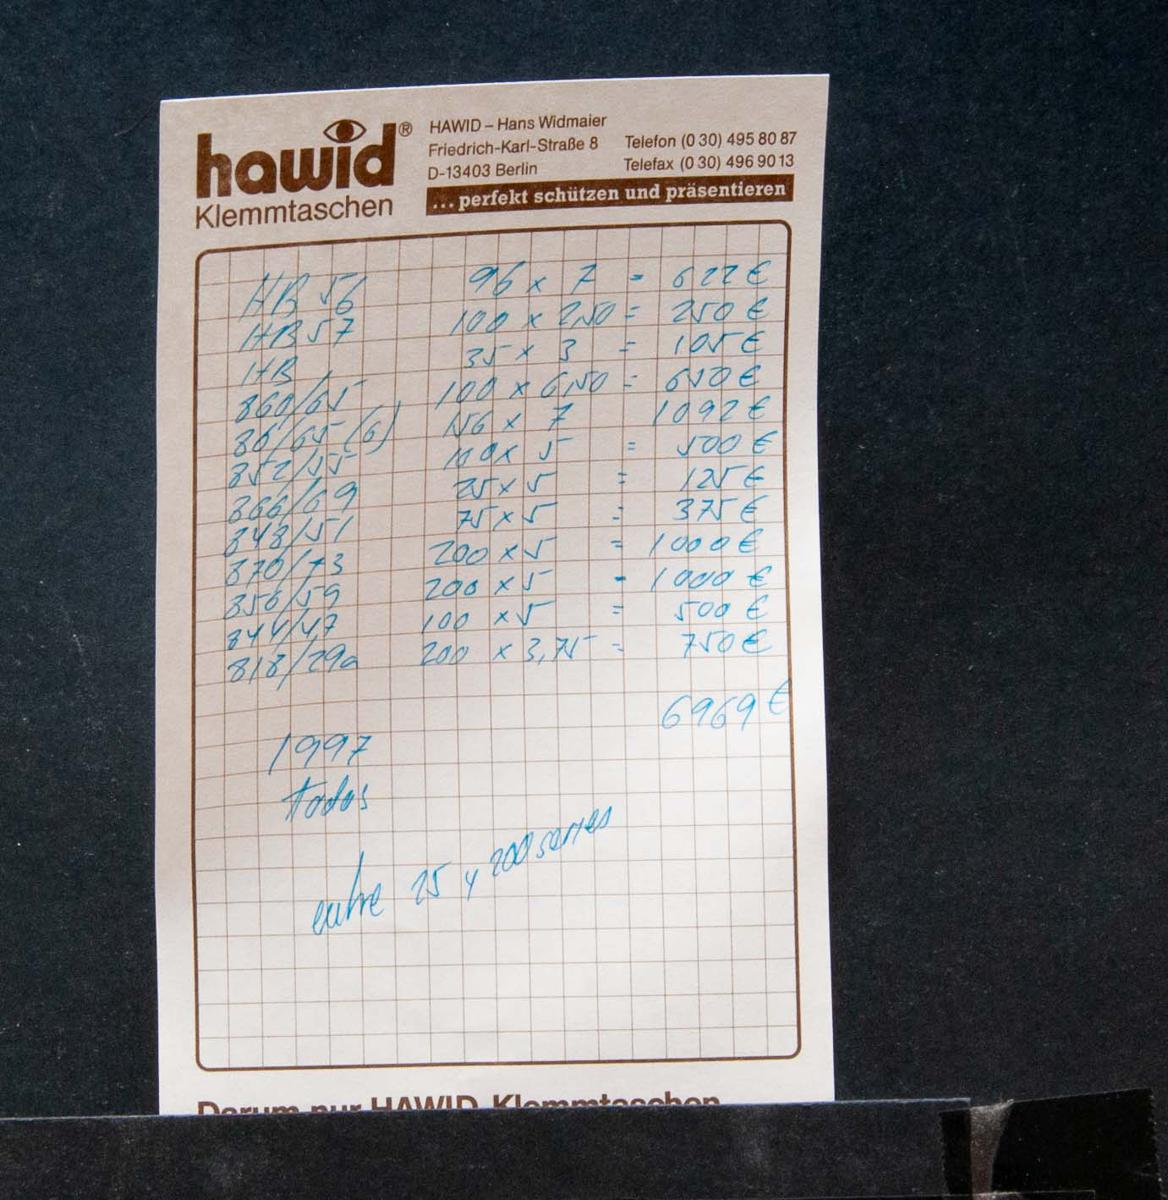 hawid®
Klemmtaschen
HAWID – Hans Widmaier
Friedrich-Karl-Straße 8
D-13403 Berlin
Telefon (0 30) 495 80 87
Telefax (0 30) 496 90 13
... perfekt schützen und präsentieren
HB 56 96 x 7 = 622 €
HB 57 100 x 2,50 = 250 €
HB 35 x 3 = 105 €
860/65 100 x 6,50 = 650 €
86/65 (6) 156 x 7 1092 €
852/55 100 x 5 = 500 €
866/69 25 x 5 = 125 €
848/51 75 x 5 = 375 €
870/73 200 x 5 = 1000 €
856/59 200 x 5 = 1000 €
844/47 100 x 5 = 500 €
818/29a 200 x 3,75 = 750 €
6969 €
1997
todos
entre 25 y 200 series
Darum nur HAWID Klemmtaschen